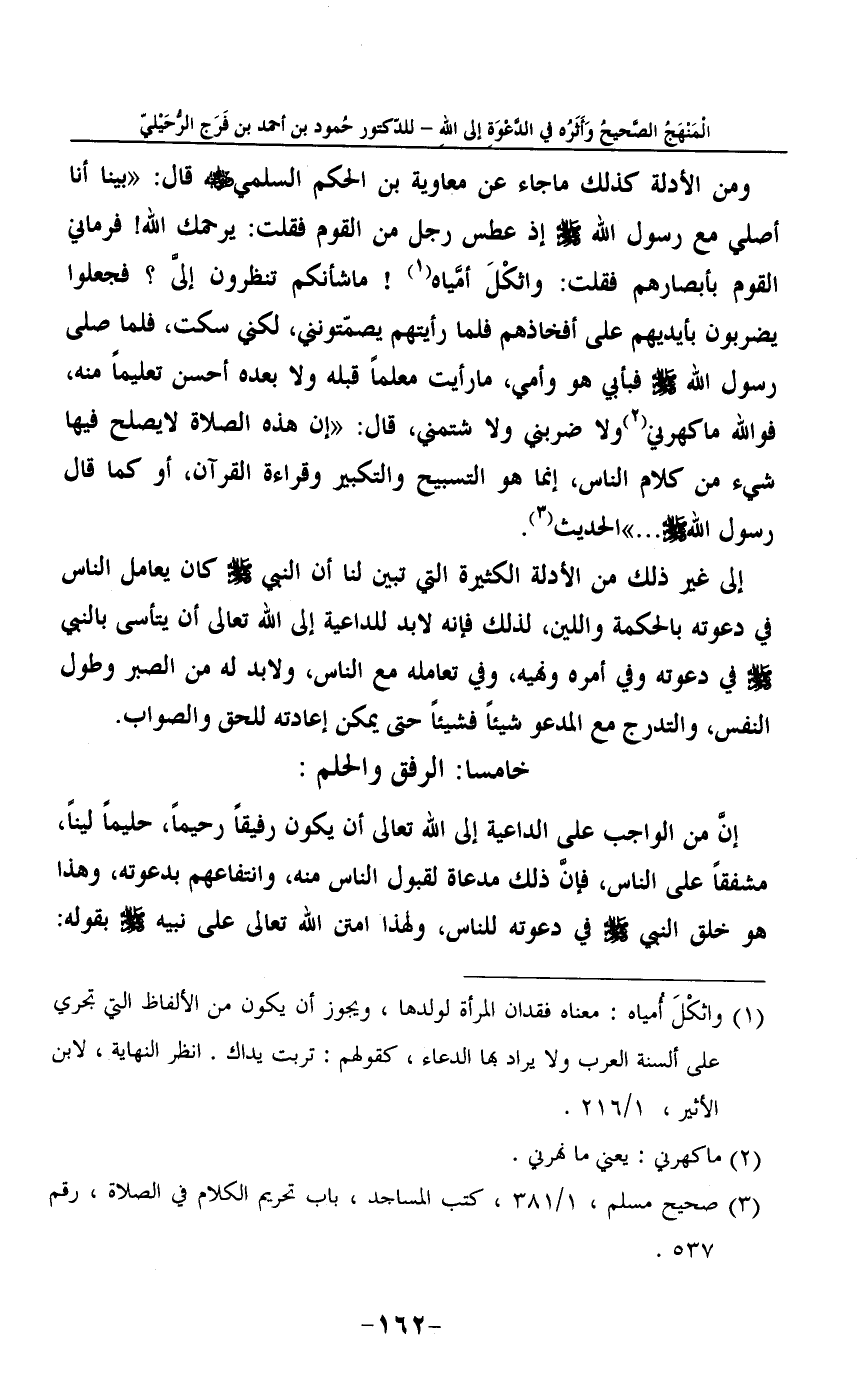 الْمَنْهَجُ الصَّحِيحُ وَأَثَرُه في الدَّعْوَةِ إلى اللهِ – للدّكتور حُمود بن أحمد بن فَرَج الرُّحَيْليّ
ومن الأدلة كذلك ماجاء عن معاوية بن الحكم السلمي﷜ قال: «بينا أنا
أصلي مع رسول الله ﷺ إذ عطس رجل من القوم فقلت: يرحمك الله! فرماني
القوم بأبصارهم فقلت: واثكْلَ أمَّياه(١) ! ماشأنكم تنظرون إليَّ ؟ فجعلوا
يضربون بأيديهم على أفخاذهم فلما رأيتهم يصمّتونني، لكني سكت، فلما صلى
رسول الله ﷺ فبأبي هو وأمي، مارأيت معلماً قبله ولا بعده أحسن تعليماً منه،
فوالله ماكهرني(٢)ولا ضربني ولا شتمني، قال: «إن هذه الصلاة لايصلح فيها
شيء من كلام الناس، إنما هو التسبيح والتكبير وقراءة القرآن، أو كما قال
رسول اللهﷺ...»الحديث(٣).
إلى غير ذلك من الأدلة الكثيرة التي تبين لنا أن النبي ﷺ كان يعامل الناس
في دعوته بالحكمة واللين، لذلك فإنه لابد للداعية إلى الله تعالى أن يتأسى بالنبي
ﷺ في دعوته وفي أمره ونهيه، وفي تعامله مع الناس، ولابد له من الصبر وطول
النفس، والتدرج مع المدعو شيئاً فشيئاً حتى يمكن إعادته للحق والصواب.
خامسا: الرفق والحلم :
إنَّ من الواجب على الداعية إلى الله تعالى أن يكون رفيقاً رحيماً، حليماً ليناً،
مشفقاً على الناس، فإنَّ ذلك مدعاة لقبول الناس منه، وانتفاعهم بدعوته، وهذا
هو خلق النبي ﷺ في دعوته للناس، ولهذا امتن الله تعالى على نبيه ﷺ بقوله:
(١) واثكْلَ أُمياه : معناه فقدان المرأة لولدها ، ويجوز أن يكون من الألفاظ التي تجري
على ألسنة العرب ولا يراد بها الدعاء ، كقولهم : تربت يداك . انظر النهاية ، لابن
الأثير ، ٢١٦/١ .
(٢) ماكهرني : يعني ما نهرني .
(٣) صحيح مسلم ، ٣٨١/١ ، كتب المساجد ، باب تحريم الكلام في الصلاة ، رقم
٥٣٧ .
-١٦٢-